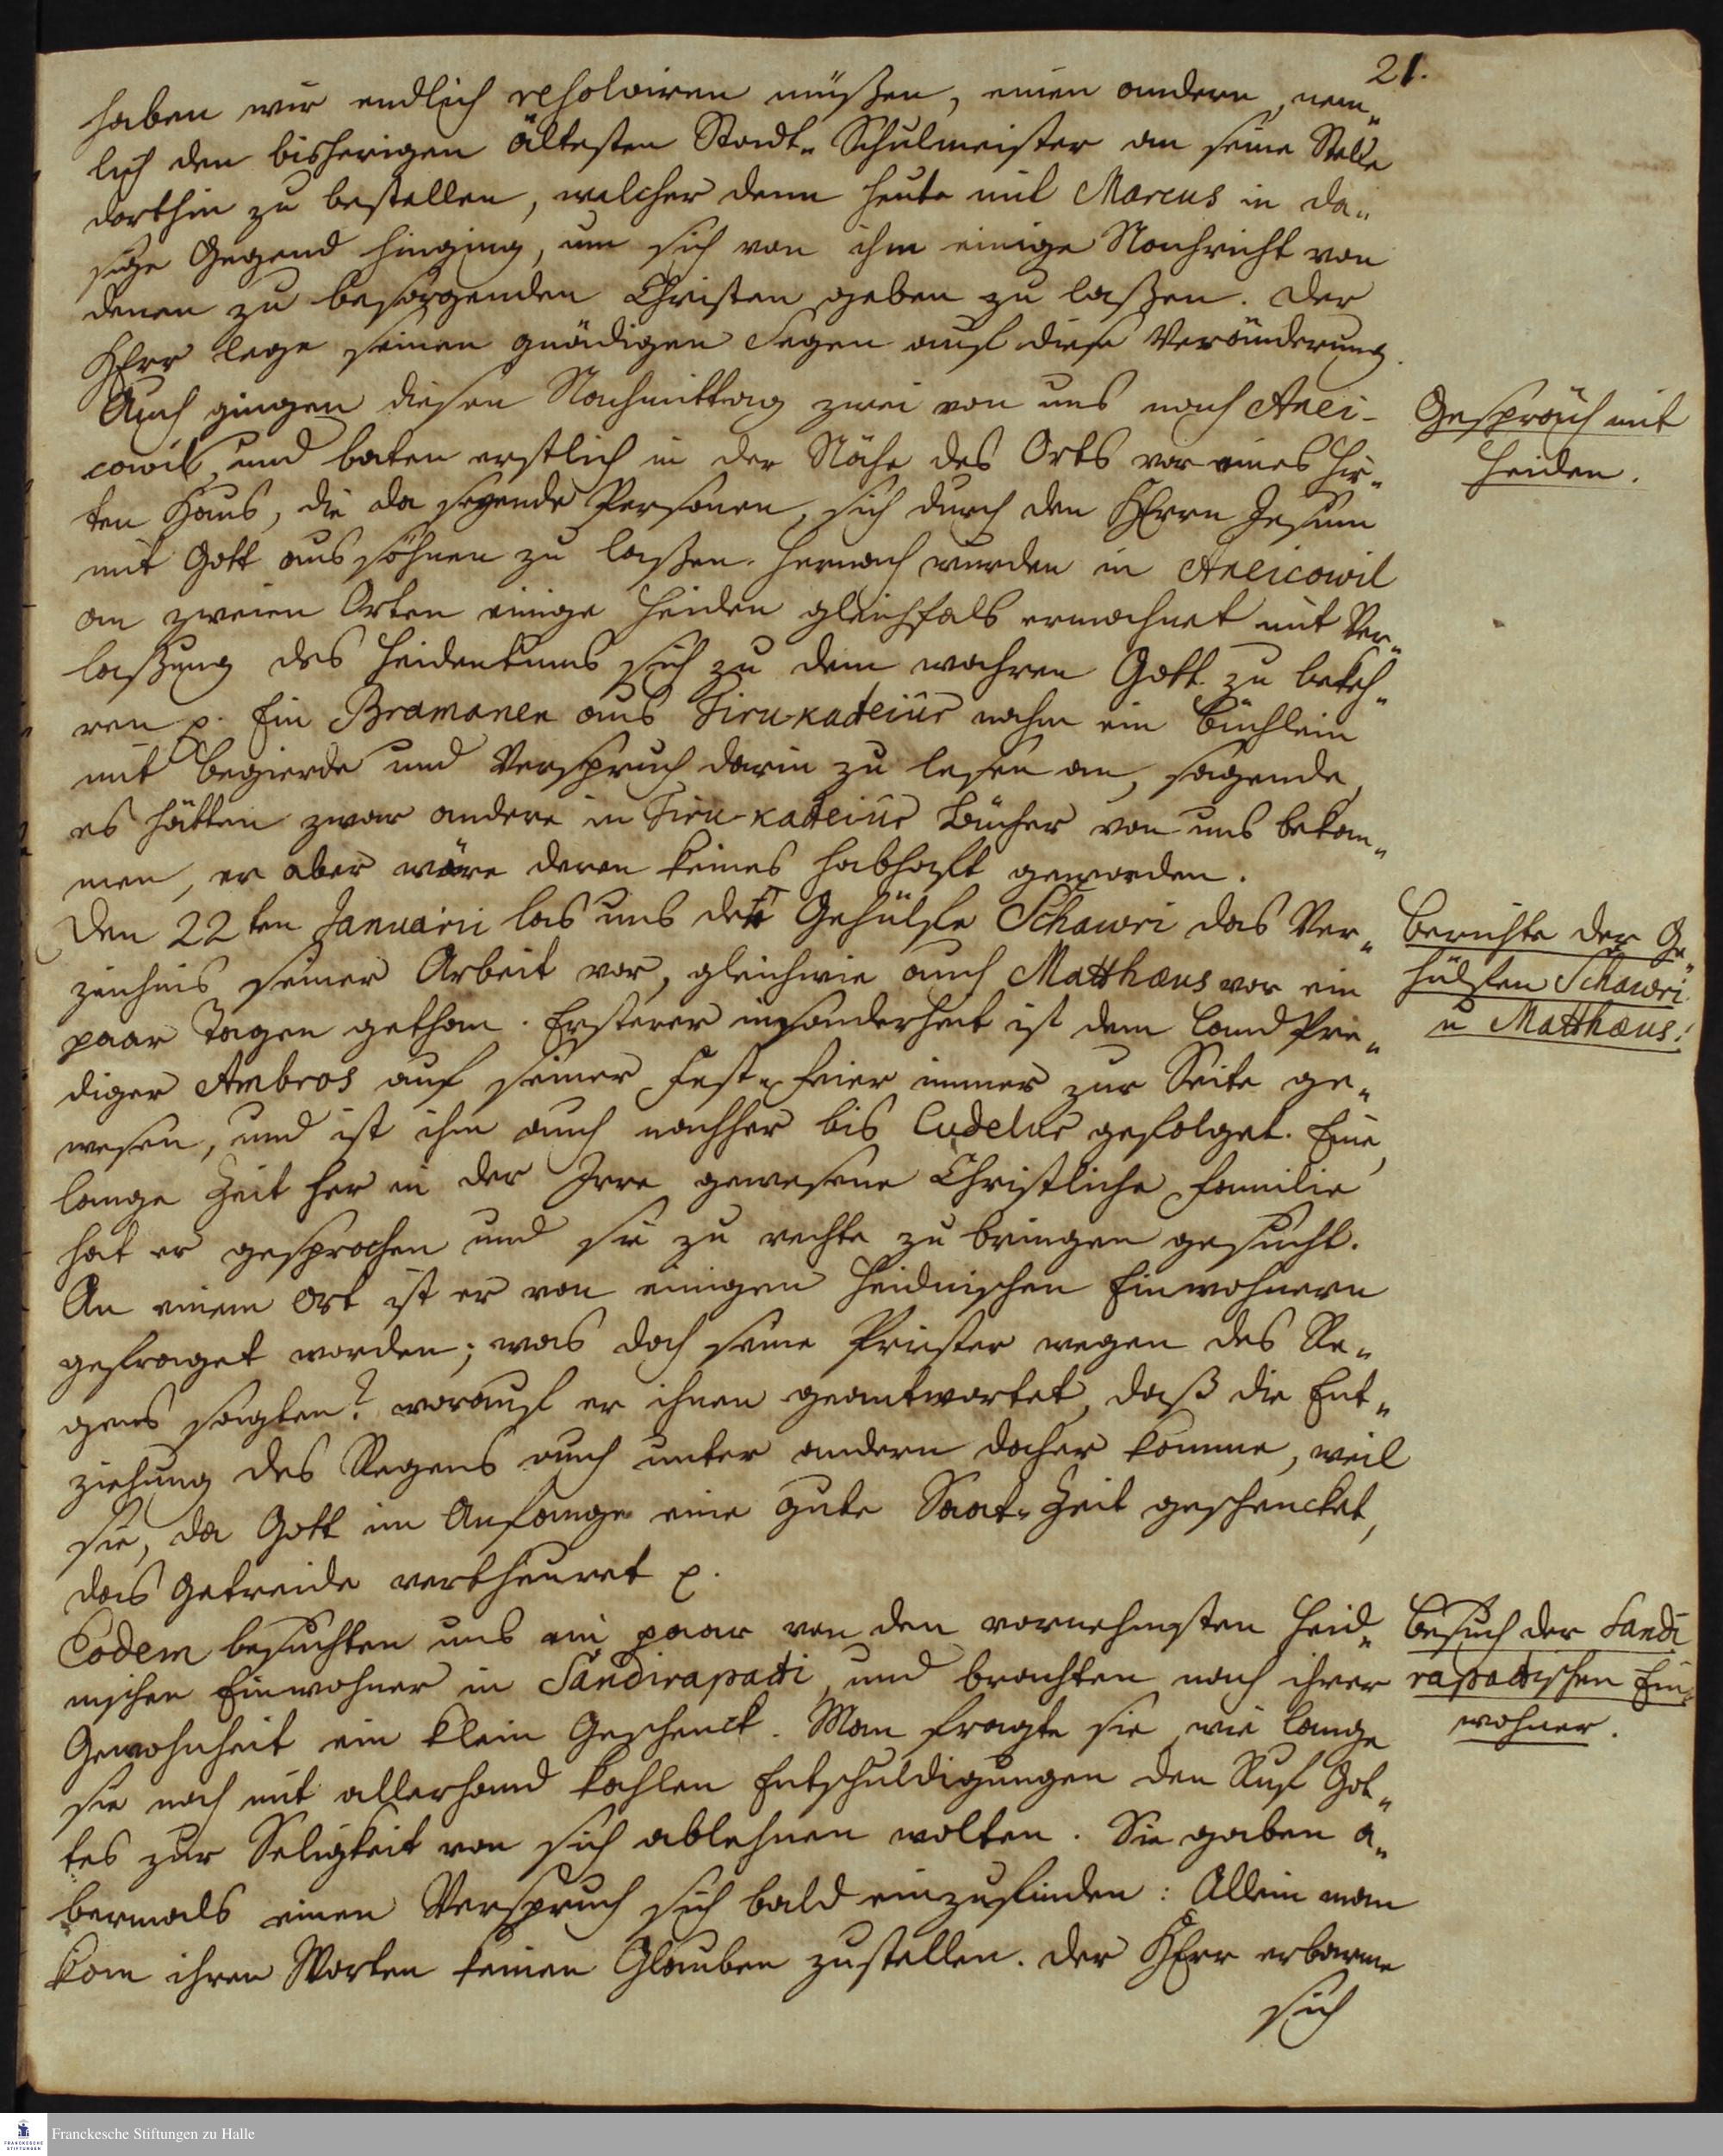 21.
haben wir endlich resolviren müßen, einen andern, nem„
lich den bisherigen ältesten Stadt„ Schulmeister an seine Stelle
dorthin zu bestellen, welcher denn heute mit Marcus in da„
sige Gegend hinging, um sich von ihm einige Nachricht von
denen zu besorgenden Christen geben zu laßen. Der
HErr lege seinen gnädigen Segen auf diese Veränderung.
Auch gingen diesen Nachmittag zwei von uns nach Anei-
cowil, und baten erstlich in der Nähe des Orts vor eines Hir„
ten Haus, die da seyende Personen, sich durch den HErrn Jesum
mit Gott aussöhnen zu laßen. Hernach wurden in Aneicowil
an zweien Orten einige Heiden gleichfals ermahnet mit Ver„
laßung des Heidentums sich zu dem wahren Gott zu bekeh„
ren p. Ein Bramanen aus Tiru-kadeiur nahm ein Büchlein
mit Begierde und Verspruch darin zu lesen an, sagende,
es hätten zwar andere in Tiru-kadeiur Bücher von uns bekom„
men, er aber wäre deren keines habhaft geworden.
Den 22ten Januarii las uns der Gehülfe Schawri das Ver„
zeichnis seiner Arbeit vor, gleichwie auch Matthæus vor ein
paar Tagen gethan. Ersterer insonderheit ist dem Land Pre„
diger Ambros auf seiner Fest„ Feier immer zur Seite ge„
wesen, und ist ihm auch nachher bis Cudelur gefolget. Eine
lange Zeit her in der Irre gewesene Christliche Familie
hat er gesprochen und sie zu rechte zu bringen gesucht.
An einem Ort ist er von einigen Heidnischen Einwohnern
gefraget worden; was doch seine Priester wegen des Re„
gens sagten? worauf er ihnen geantwortet, daß die Ent„
ziehung des Regens auch unter andern daher komme, weil
sie, da Gott im Anfange eine gute Saat„ Zeit geschencket,
das Getreide vertheuret p.
Eodem besuchten uns ein paar von den vornehmsten Heid„
nischen Einwohner in Sandirapadi, und brachten nach ihrer
Gewohnheit ein klein Geschenck. Man fragte sie, wie lange
sie noch mit allerhand kahlen Entschuldigungen den Ruf Got„
tes zur Seligkeit von sich ablehnen wolten. Sie gaben a„
bermals einen Verspruch sich bald einzufinden: Allein man
kan ihren Worten keinen Glauben zustellen. Der HErr erbarme
sich
Gespräch mit
Heiden.
Berichte der Ge„
hülfen Schawri
u Matthæus.
Besuch der Sandi
rapadischen Ein„
wohner.
Franckesche Stiftungen zu Halle
FRANCKESCHE
STIFTUNGEN